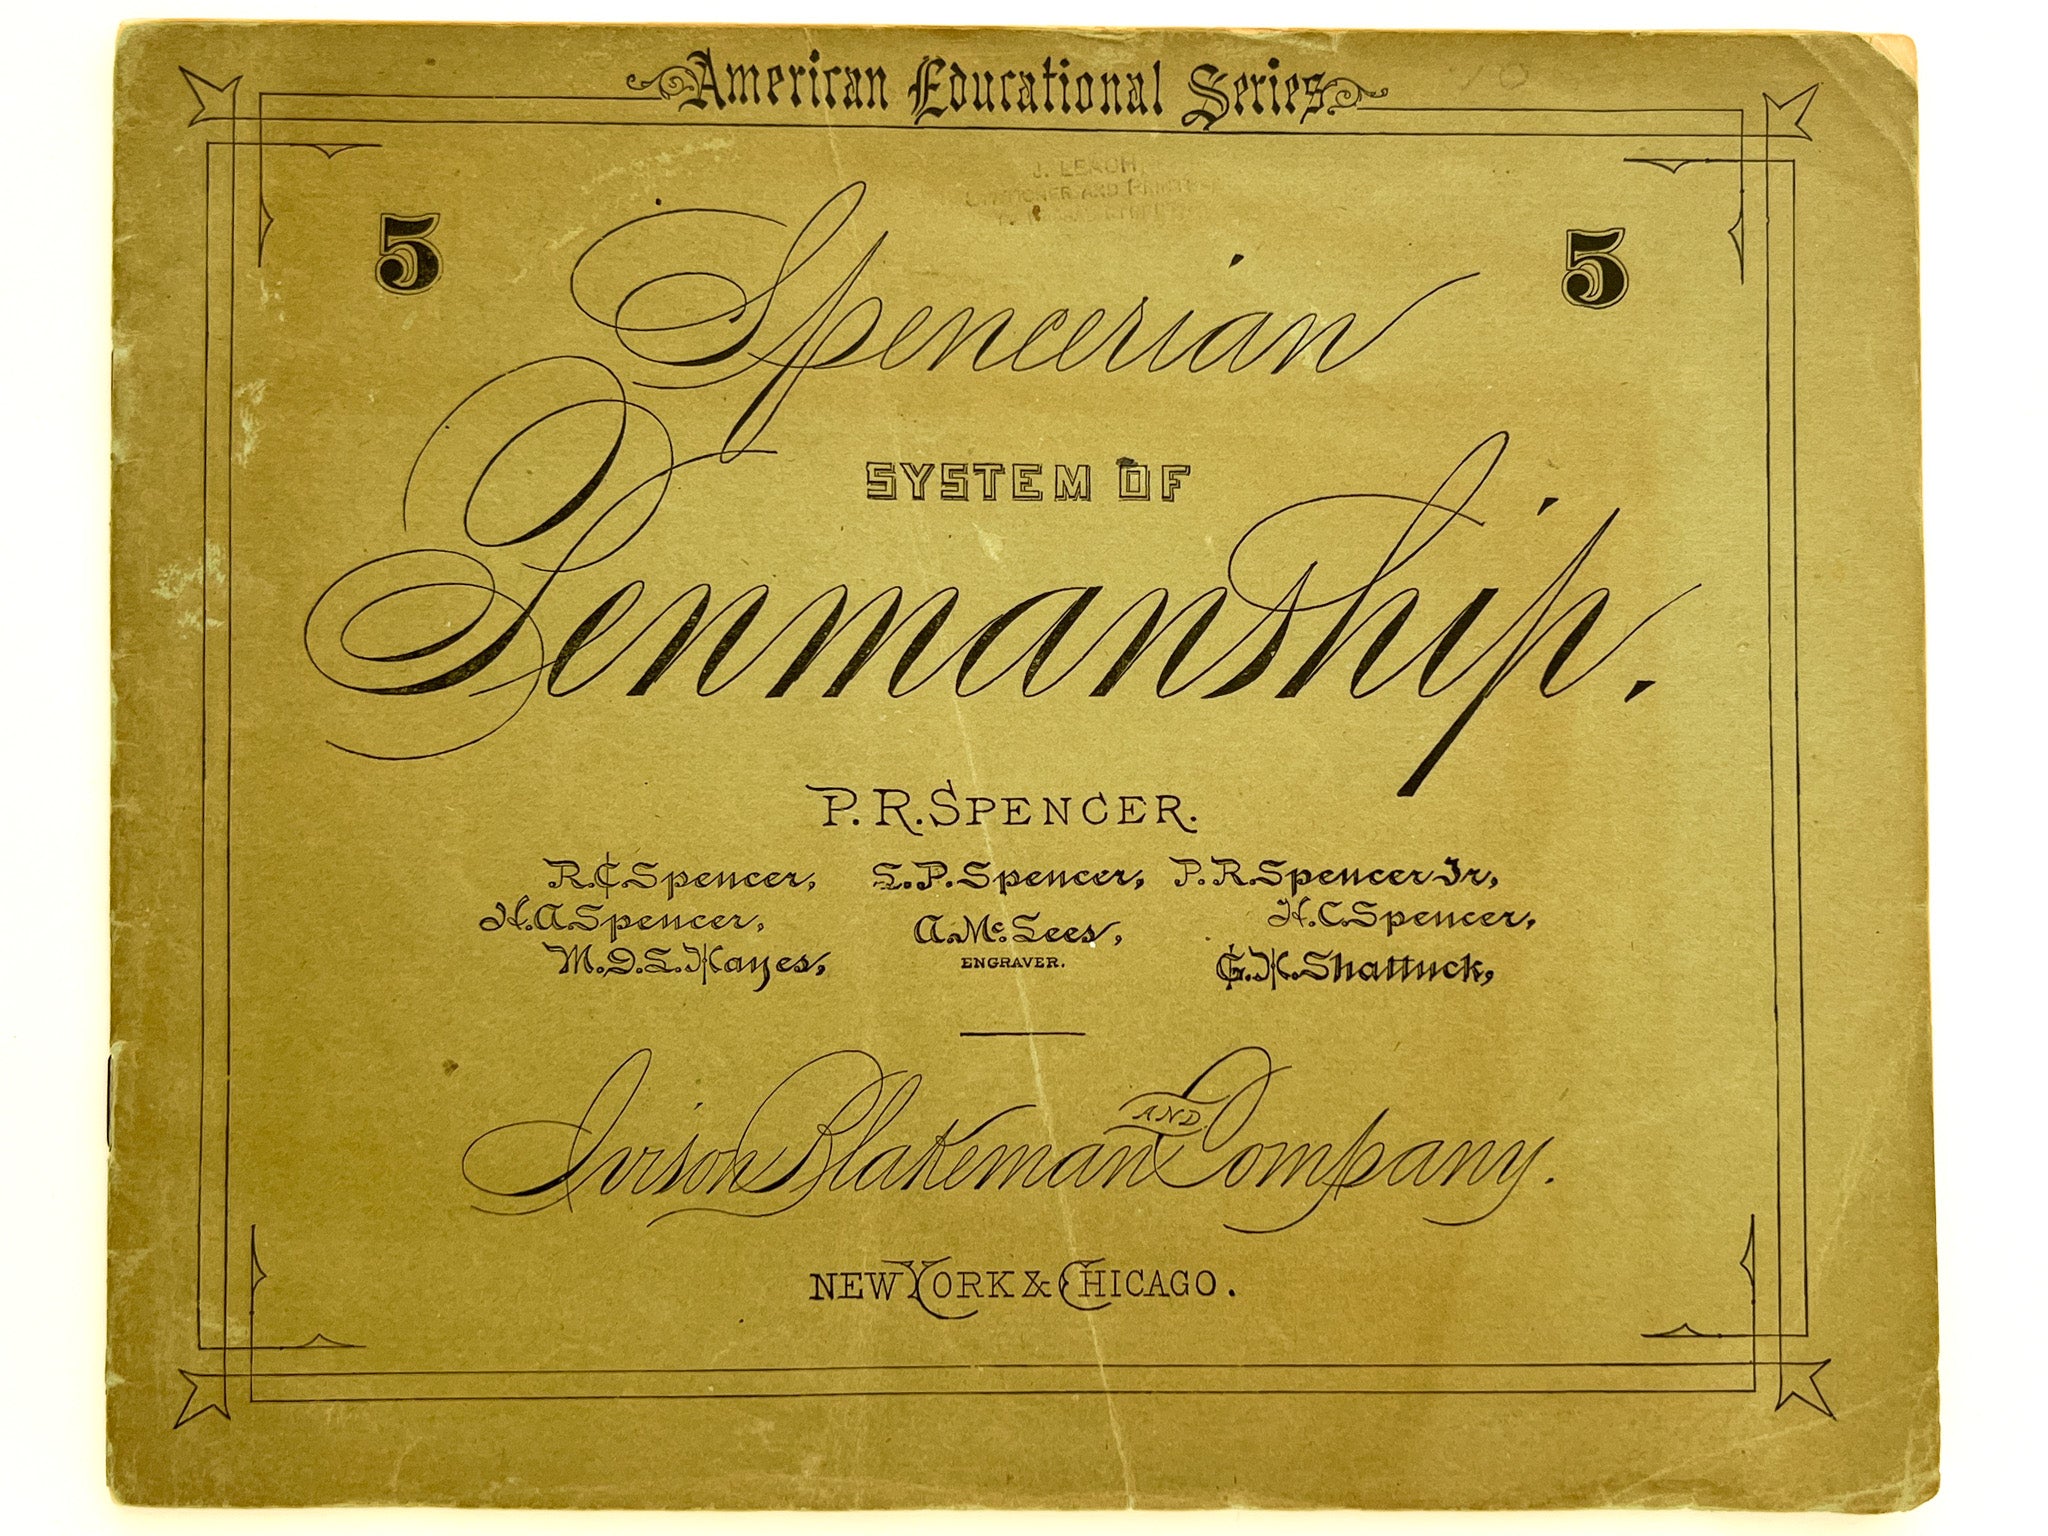 American Educational Series.
J. LEACH,
STATIONER AND PRINTER
5 5
Spencerian
SYSTEM OF
Penmanship.
P. R. SPENCER.
R. C. Spencer, L. P. Spencer, P. R. Spencer Jr,
H. A. Spencer, A. Mc. Lees, H. C. Spencer,
ENGRAVER.
M. D. L. Hayes, G. H. Shattuck,
Ivison Blakeman AND Company.
NEW YORK & CHICAGO.